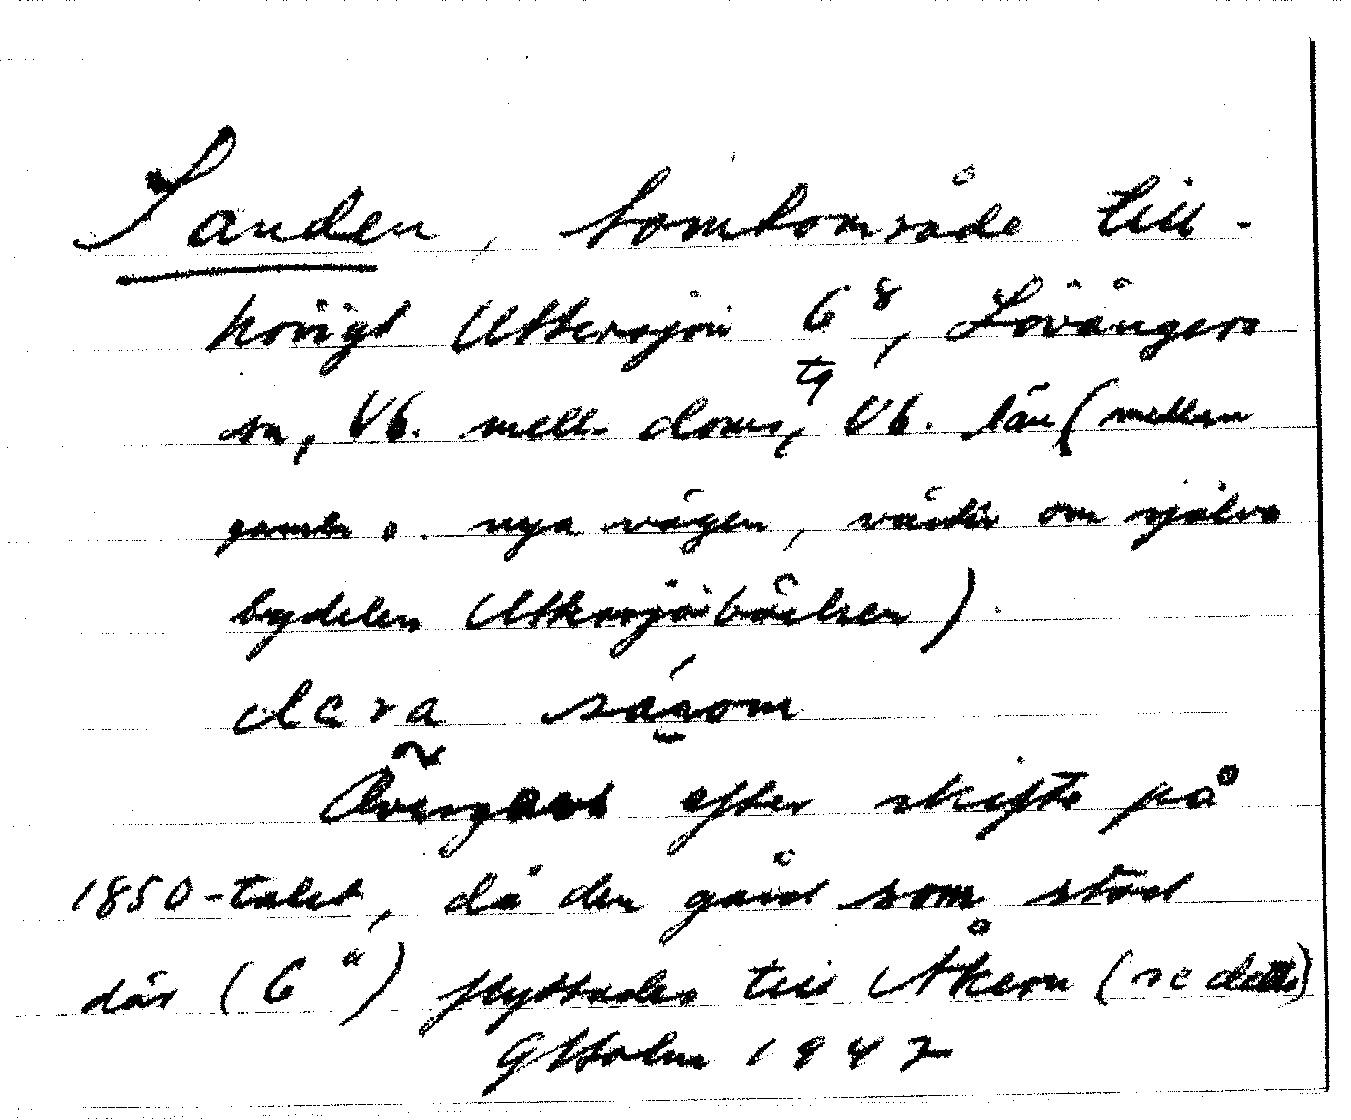 Sanden, tomtområde till-
hörigt Uttersjön 6⁸, Lövångers
sn, Vb. mell. doms, tg Vb. län (mellan
gamla o. nya vägen, väster om själva
bydelen Uttersjöbäcken).
dera
Övergavs efter skifte på
1850-talet, då den gård som stod
där (6ᵃ) flyttades till Åkern (se detta)
GHholm 1942